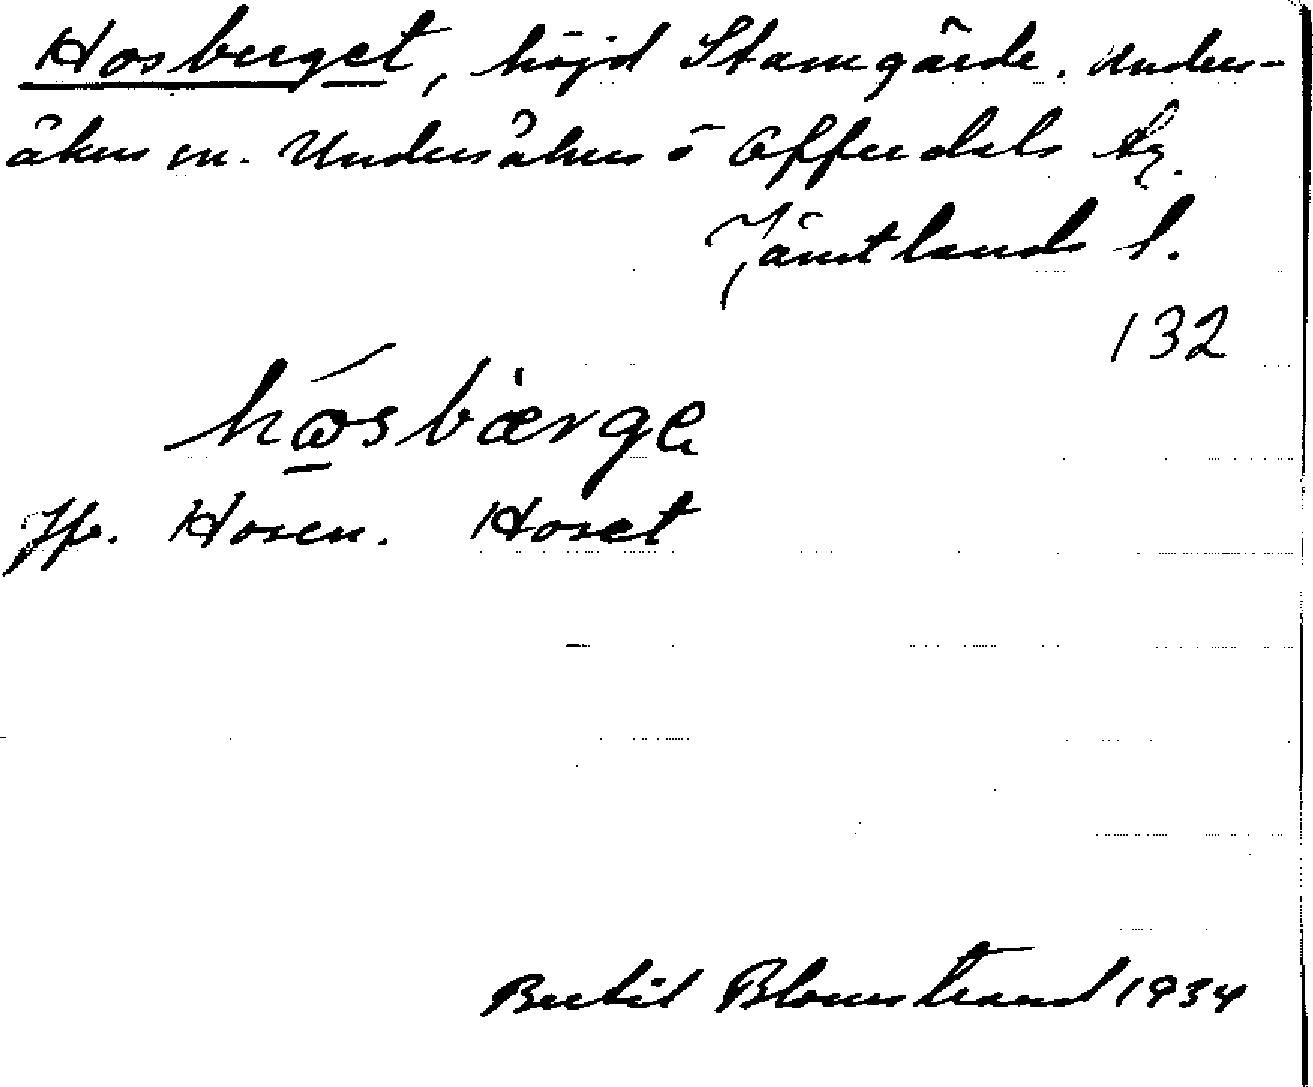 Hosberget, höjd Stamgärde. Unders-
åkers sn. Undersåkers o Offerdals tg.
Jämtlands l.
132
hɷ́sbæ̀rgɛ
Jfr. Hosen. Hoset
Bertil Blomstrand 1934